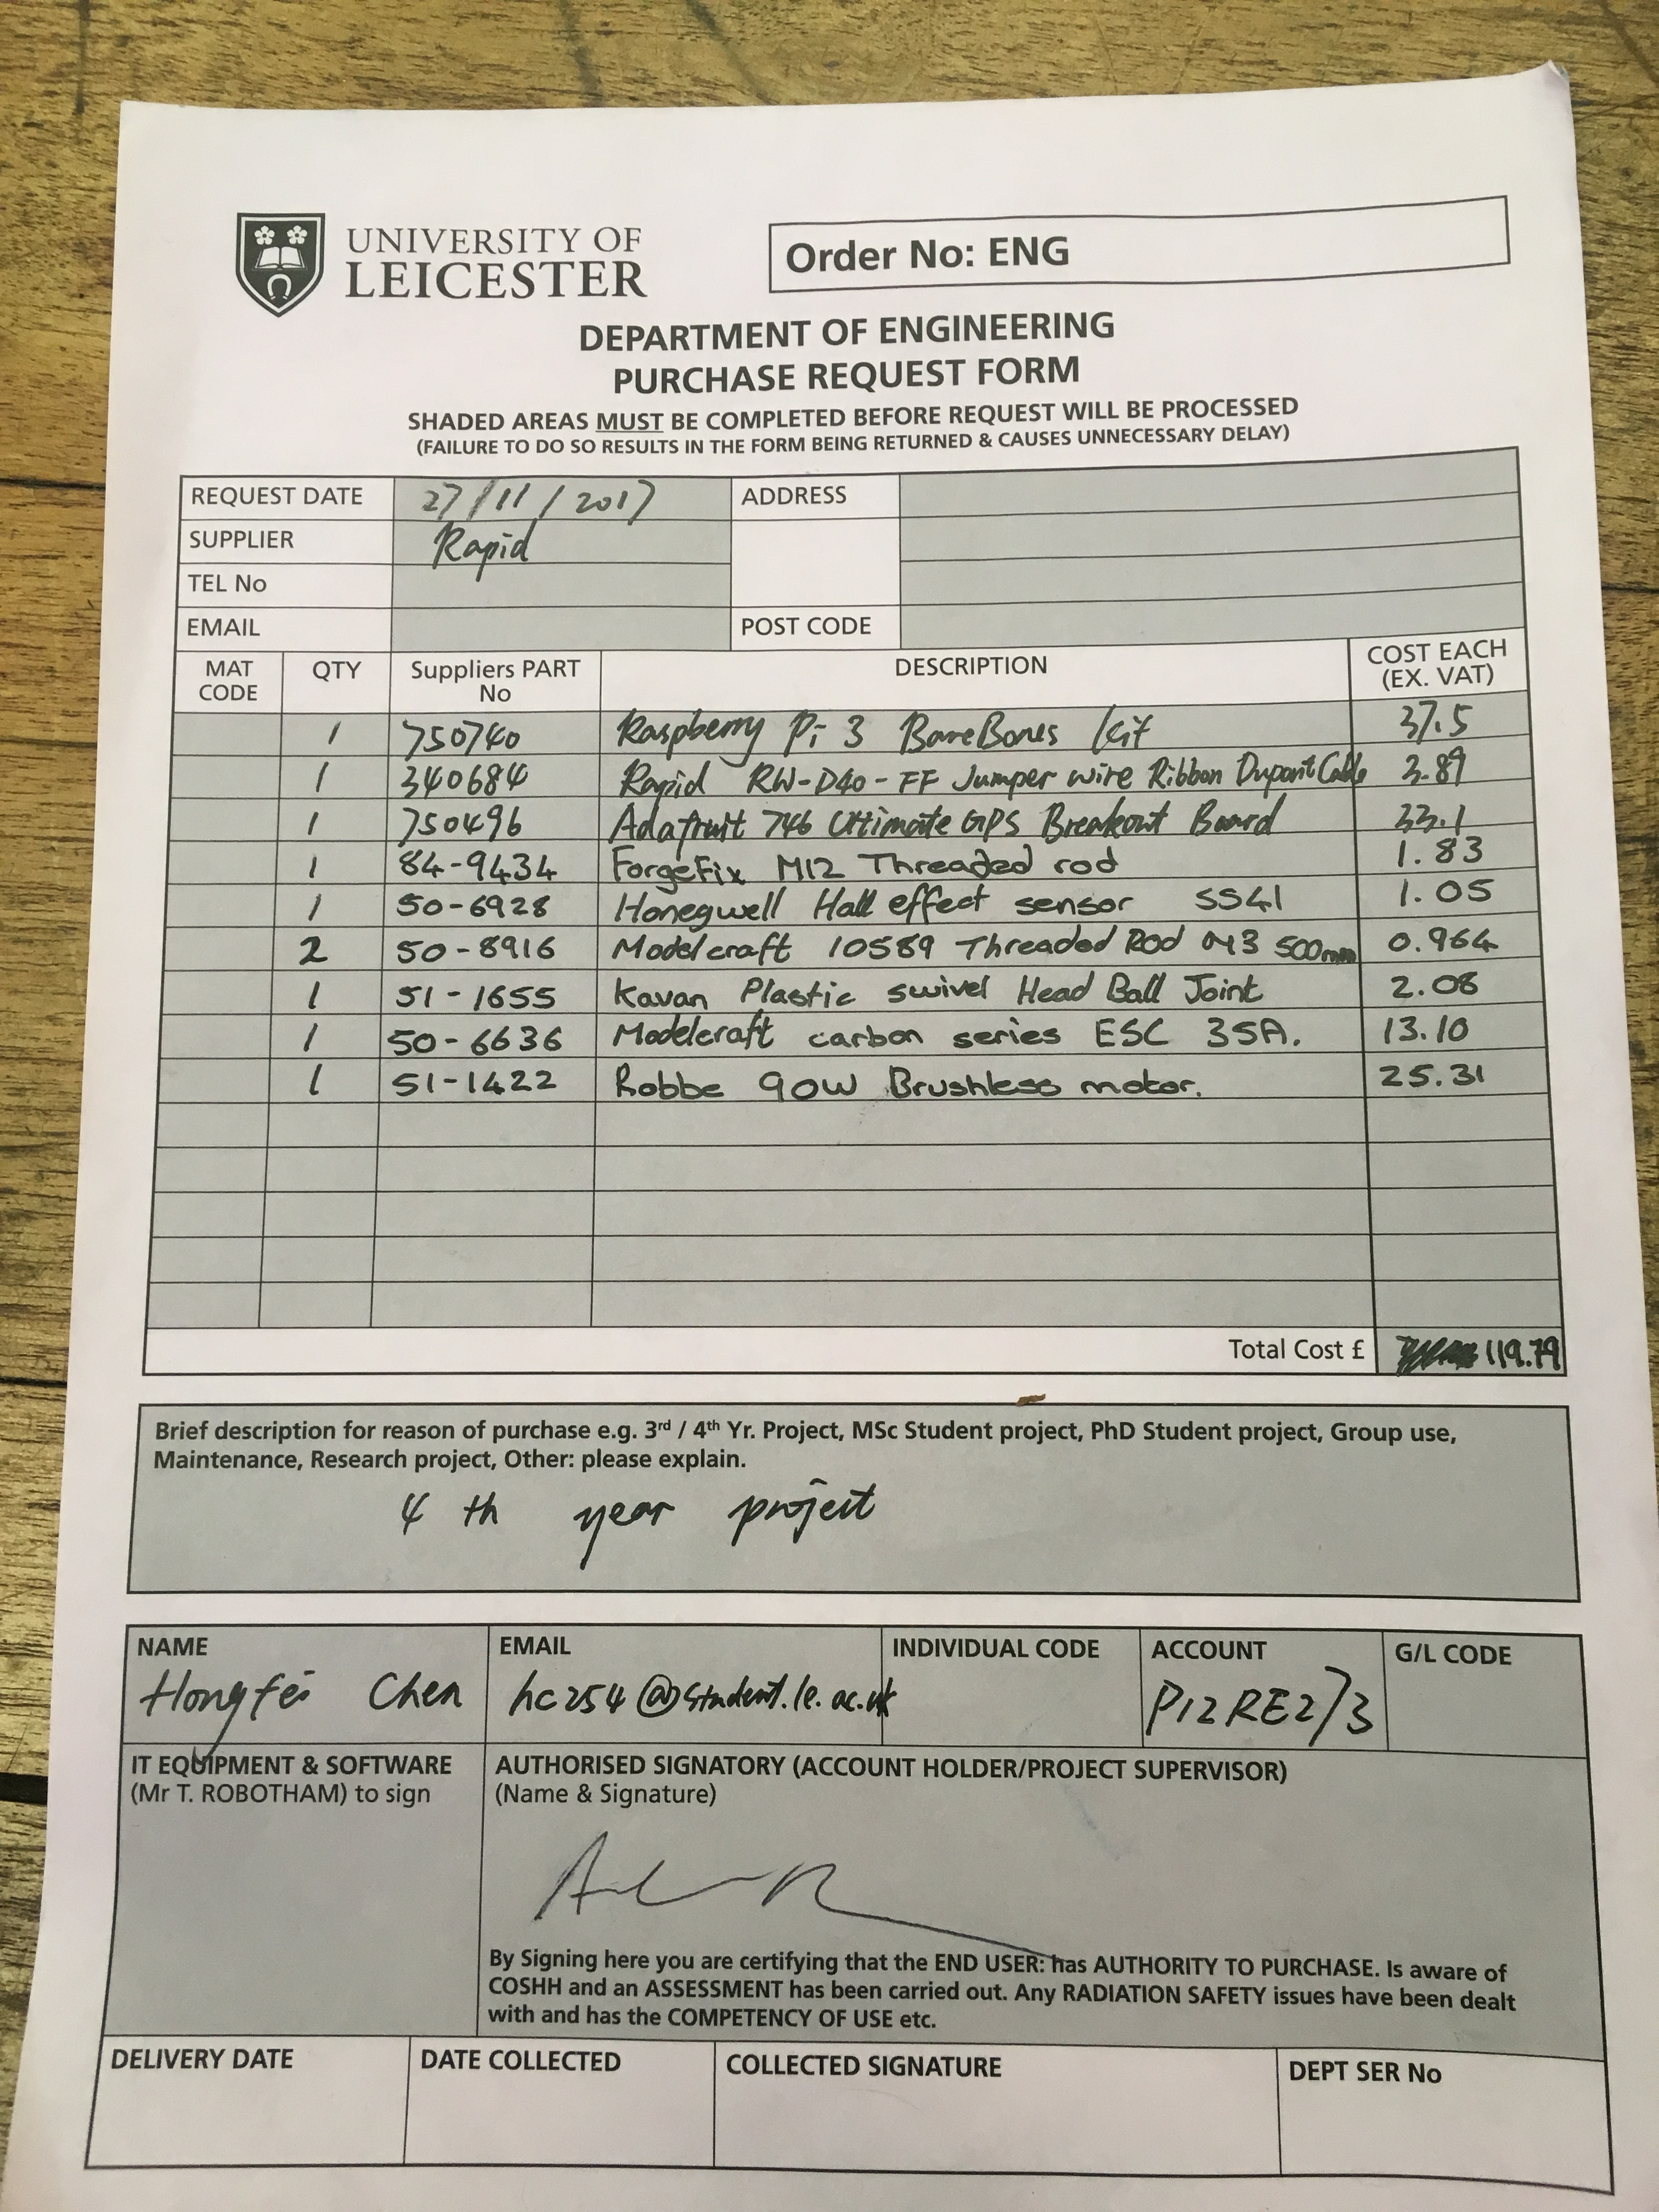 UNIVERSITY OF
LEICESTER
Order No: ENG
DEPARTMENT OF ENGINEERING
PURCHASE REQUEST FORM
SHADED AREAS MUST BE COMPLETED BEFORE REQUEST WILL BE PROCESSED
(FAILURE TO DO SO RESULTS IN THE FORM BEING RETURNED & CAUSES UNNECESSARY DELAY)
REQUEST DATE 27/11/2017 ADDRESS
SUPPLIER Rapid
TEL No
EMAIL POST CODE
MAT CODE QTY Suppliers PART No DESCRIPTION COST EACH (EX. VAT)
1 750740 Raspberry Pi 3 BareBones Kit 37.5
1 340684 Rapid RW-D40-FF Jumper wire Ribbon Dupont Cable 3.89
1 750496 Adafruit 746 Ultimate GPS Breakout Board 33.1
1 84-9434 ForgeFix M12 Threaded rod 1.83
1 50-6928 Honegwell Hall effect sensor SS41 1.05
2 50-8916 Modelcraft 10589 Threaded Rod M3 500mm 0.964
1 51-1655 Kavan Plastic swivel Head Ball Joint 2.08
1 50-6636 Modelcraft carbon series ESC 35A. 13.10
1 51-1422 Robbe 90W Brushless motor. 25.31
Total Cost £ 119.79
Brief description for reason of purchase e.g. 3rd / 4th Yr. Project, MSc Student project, PhD Student project, Group use,
Maintenance, Research project, Other: please explain.
4 th year project
NAME EMAIL INDIVIDUAL CODE ACCOUNT G/L CODE
Hongfei Chen hc254@student.le.ac.uk P12RE2/3
IT EQUIPMENT & SOFTWARE AUTHORISED SIGNATORY (ACCOUNT HOLDER/PROJECT SUPERVISOR)
(Mr T. ROBOTHAM) to sign (Name & Signature)
By Signing here you are certifying that the END USER: has AUTHORITY TO PURCHASE. Is aware of
COSHH and an ASSESSMENT has been carried out. Any RADIATION SAFETY issues have been dealt
with and has the COMPETENCY OF USE etc.
DELIVERY DATE DATE COLLECTED COLLECTED SIGNATURE DEPT SER No